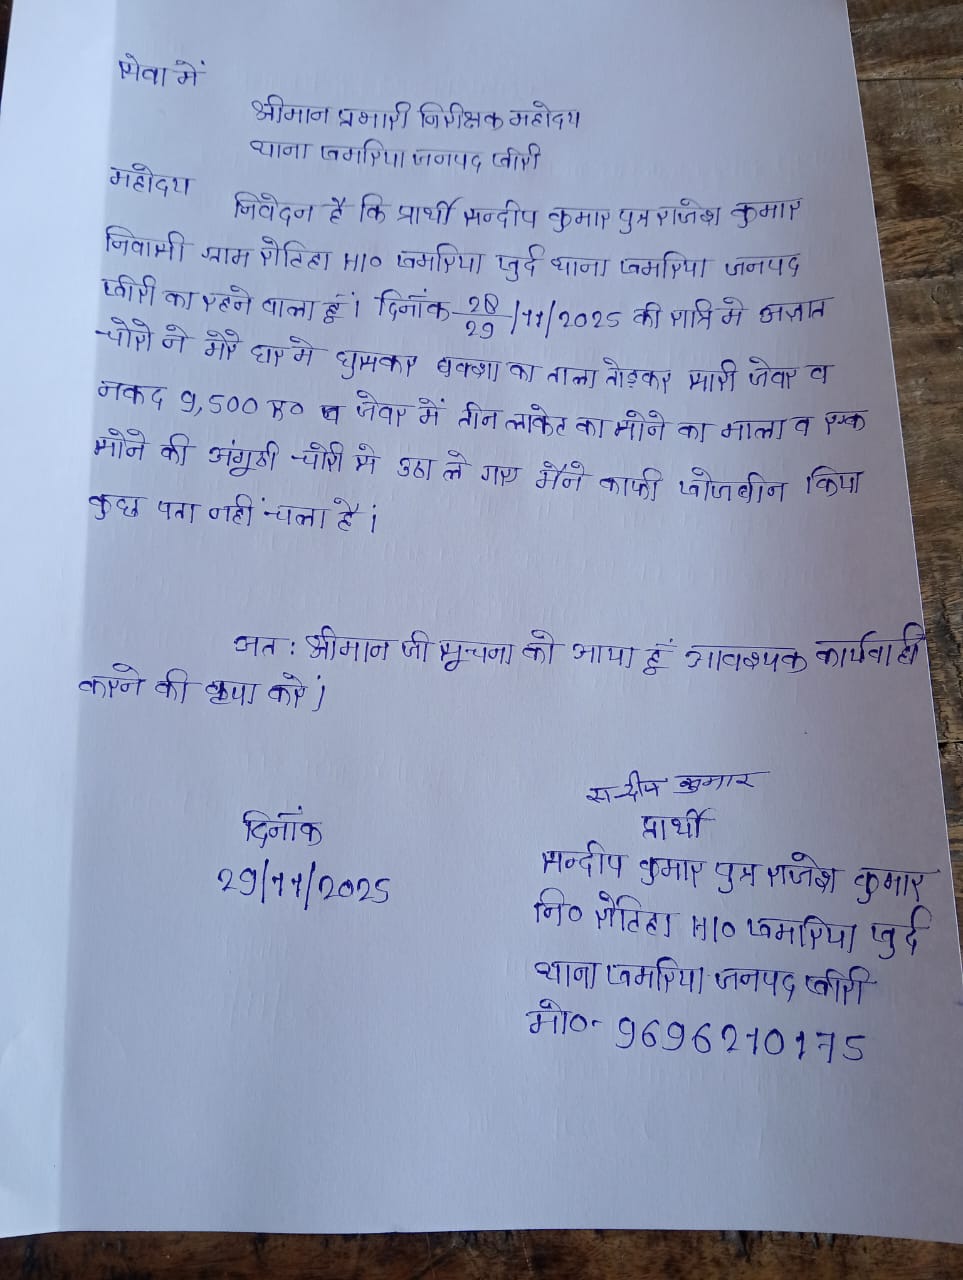 सेवा में
श्रीमान प्रभारी निरीक्षक महोदय
थाना खमरिया जनपद खीरी
महोदय
निवेदन है कि प्रार्थी सन्दीप कुमार पुत्र राजेश कुमार
निवासी ग्राम रोटिहा H/0 खमरिया खुर्द थाना खमरिया जनपद
खीरी का रहने वाला हूं। दिनाँक 28/29/11/2025 की रात्रि मे अज्ञात
चोरो ने मेरे घर मे घुसकर बक्शा का ताला तोड़कर सारी जेवर व
नकद 9,500 रु0 व जेवर में तीन लाकेट का सोने का माला व एक
सोने की अंगूठी चोरी से उठा ले गए मैंने काफी खोजबीन किया
कुछ पता नहीं चला है।
अत: श्रीमान जी सूचना को आया हूं आवश्यक कार्यवाही
करने की कृपा करे।
सन्दीप कुमार
प्रार्थी
दिनाँक
29/11/2025
सन्दीप कुमार पुत्र राजेश कुमार
नि0 रोटिहा H/0 खमरिया खुर्द
थाना खमरिया जनपद खीरी
मो0- 9696210175